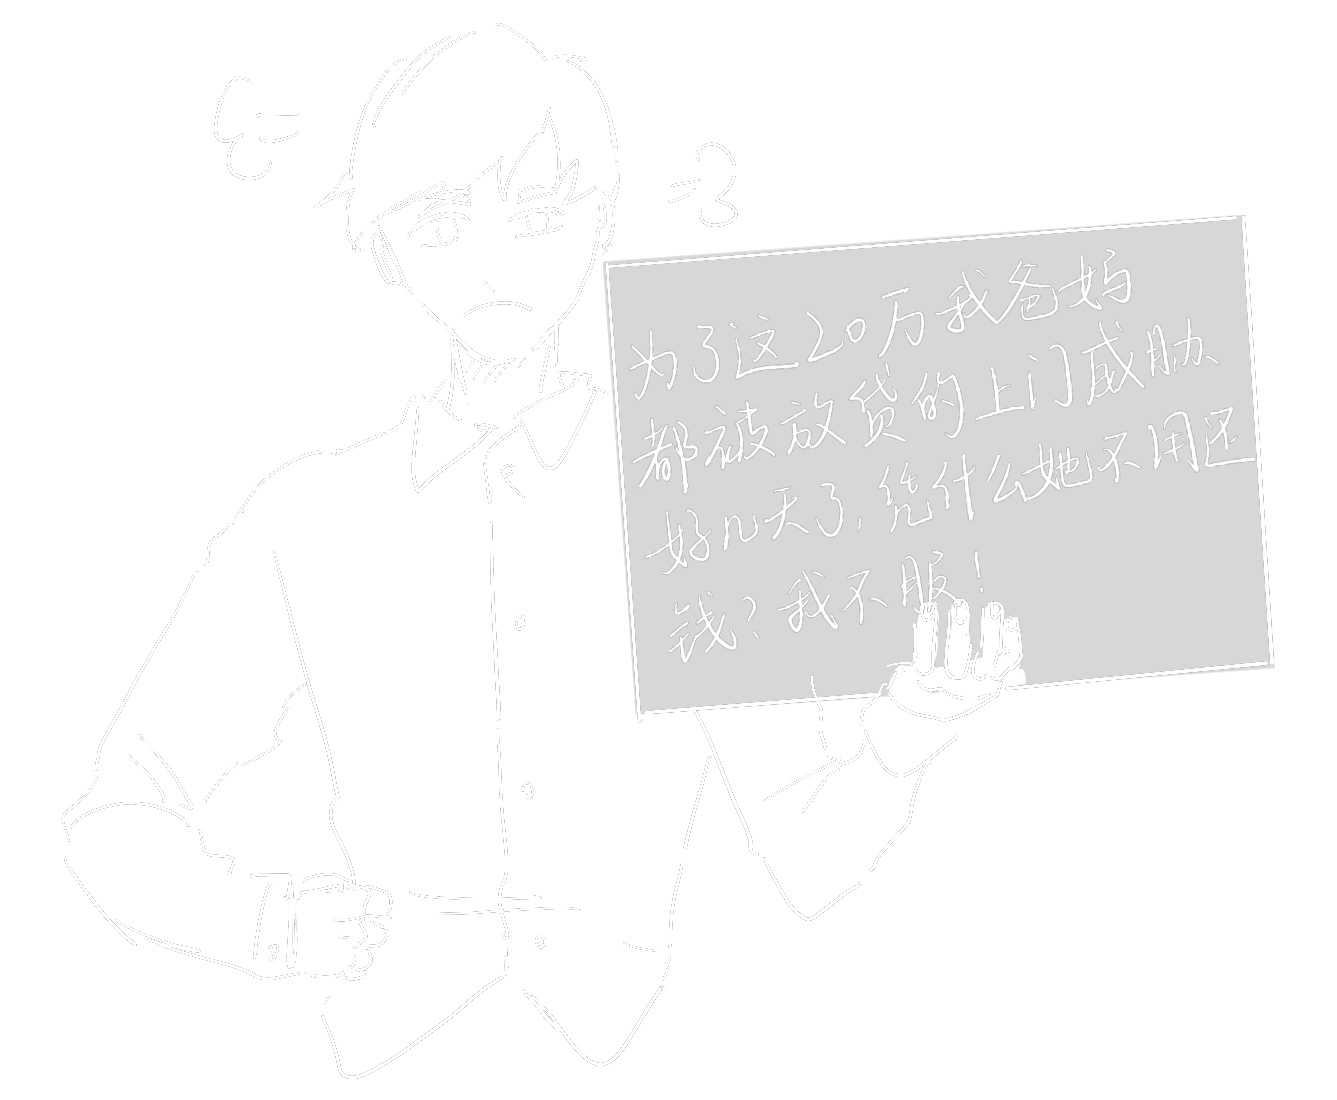 为了这20万我爸妈
都被放贷的上门威胁
好几天了,凭什么她不用还
钱?我不服!